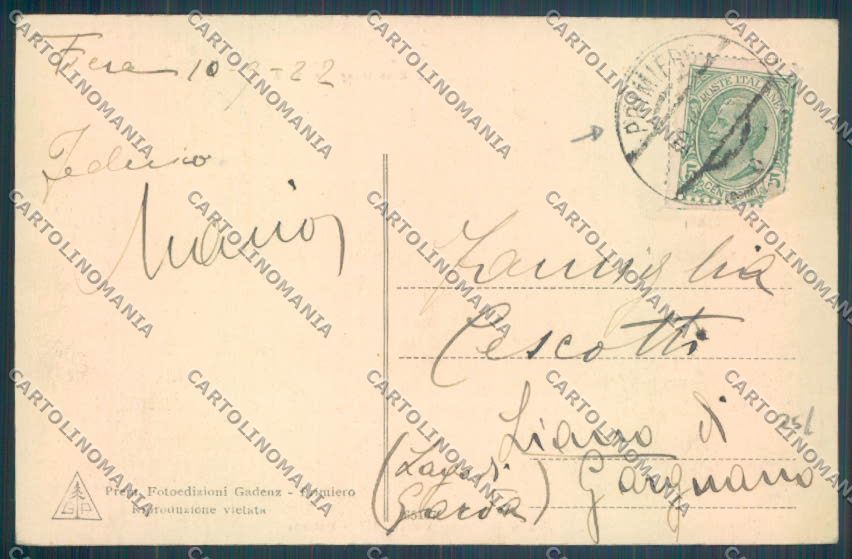 Fiera 10-9-22
Federico
Mario
PRIMIERO
POSTE ITALIANE
CENTESIMI 5
Famiglia
Cescotti
Liano di
Gargnano
(Lago di
Garda)
25/
GP
Prem. Fotoedizioni Gadenz - Primiero
Riproduzione vietata
CARTOLINOMANIA